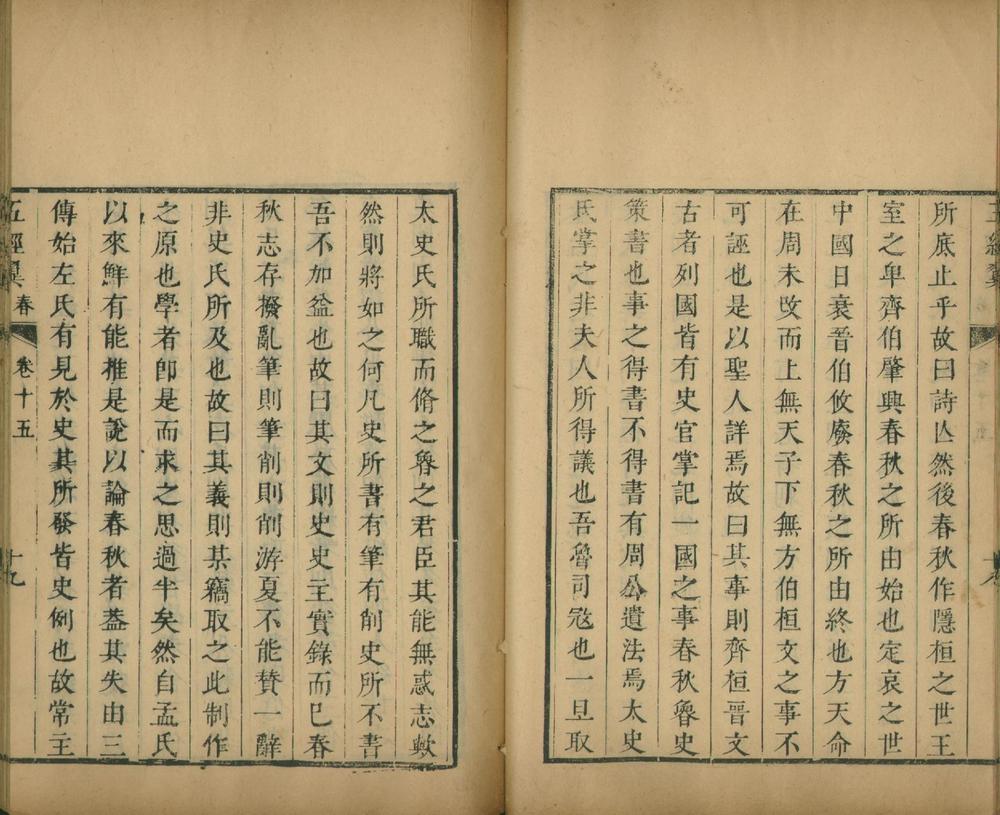 五經翼
所底止乎故曰詩亾然後春秋作隱桓之世王
室之卑齊伯肇興春秋之所由始也定哀之世
中國日衰晉伯攸廢春秋之所由終也方天命
在周未攺而上無天子下無方伯桓文之事不
可誣也是以聖人詳焉故曰其事則齊桓晉文
古者列國皆有史官掌記一國之事春秋魯史
策書也事之得書不得書有周公遺法焉太史
氏掌之非夫人所得議也吾魯司寇也一旦取
太史氏所職而脩之魯之君臣其能無惑志歟
然則將如之何凡史所書有筆有削史所不書
吾不加益也故曰其文則史史主實錄而已春
秋志存撥亂筆則筆削則削游夏不能贊一辭
非史氏所及也故曰其義則某竊取之此制作
之原也學者卽是而求之思過半矣然自孟氏
以來鮮有能推是說以論春秋者葢其失由三
傳始左氏有見於史其所發皆史例也故常主
五經翼 春 卷十五 十九